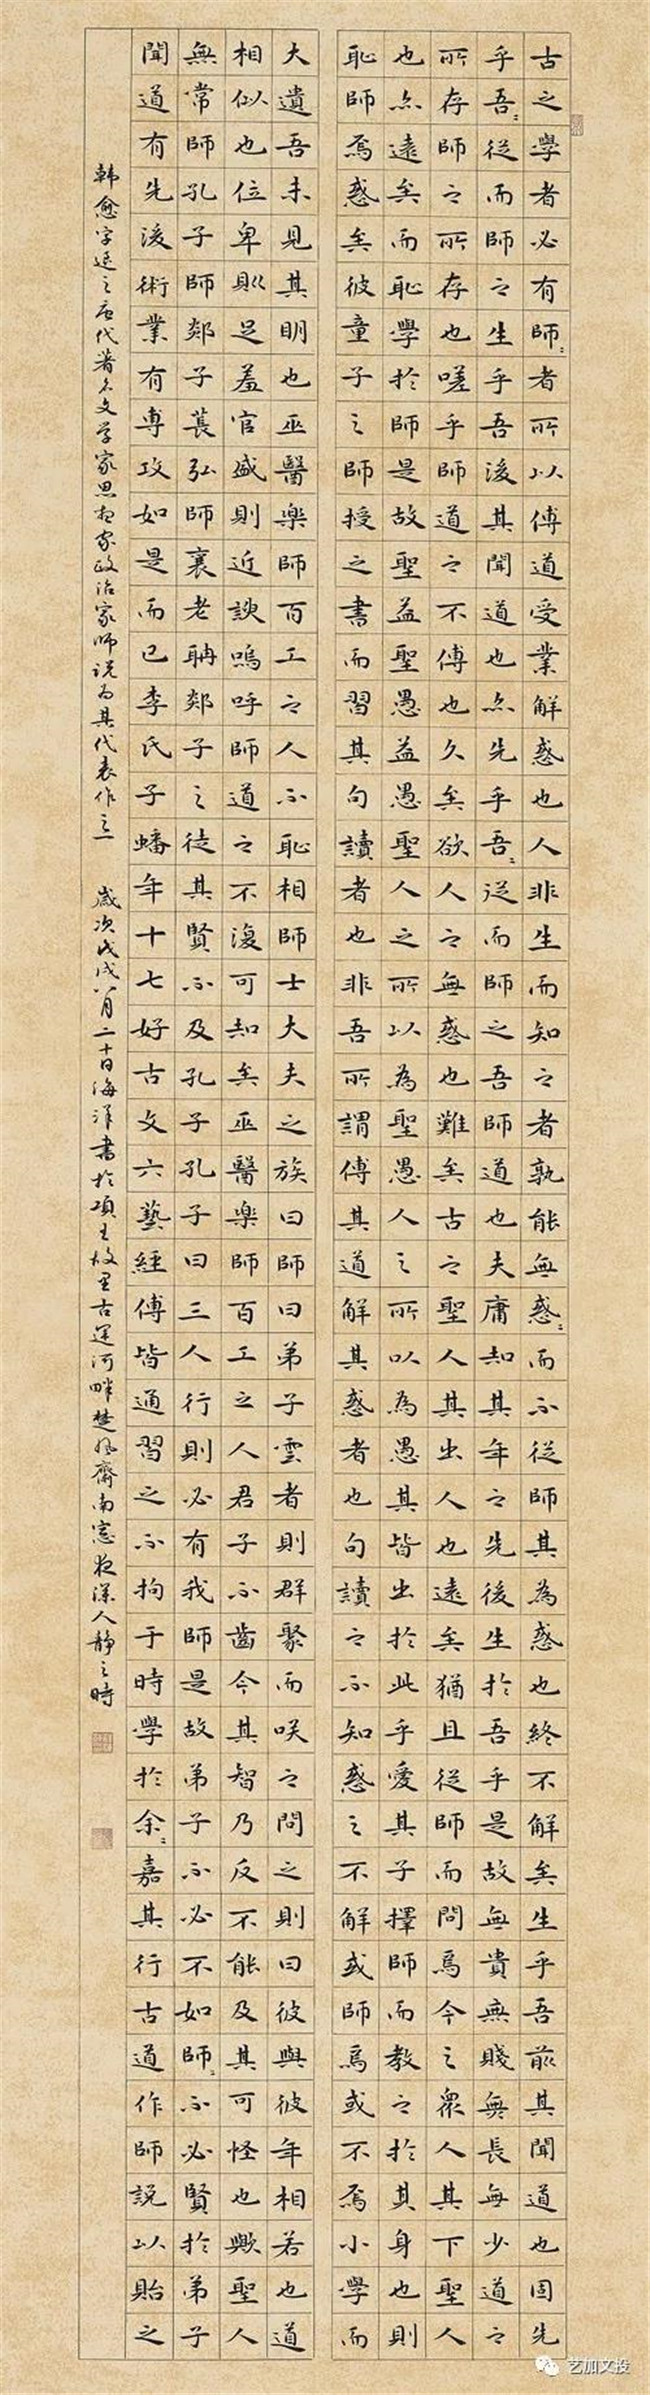 古之學者必有師〻者所以傳道受業解惑也人非生而知之者孰能無惑〻而不從師其為惑也終不解矣生乎吾前其聞道也固先
乎吾〻從而師之生乎吾後其聞道也亦先乎吾〻從而師之吾師道也夫庸知其年之先後生於吾乎是故無貴無賤無長無少道之
所存師之所存也嗟乎師道之不傳也久矣欲人之無惑也難矣古之聖人其出人也遠矣猶且從師而問焉今之眾人其下聖人
也亦遠矣而恥學於師是故聖益聖愚益愚聖人之所以為聖愚人之所以為愚其皆出於此乎愛其子擇師而教之於其身也則
恥師焉惑矣彼童子之師授之書而習其句讀者也非吾所謂傳其道解其惑者也句讀之不知惑之不解或師焉或不焉小學而
大遺吾未見其明也巫醫樂師百工之人不恥相師士大夫之族曰師曰弟子雲者則群聚而咲之問之則曰彼與彼年相若也道
相似也位卑則足羞官盛則近諛嗚呼師道之不復可知矣巫醫樂師百工之人君子不齒今其智乃反不能及其可怪也歟聖人
無常師孔子師郯子萇弘師襄老聃郯子之徒其賢不及孔子孔子曰三人行則必有我師是故弟子不必不如師〻不必賢於弟子
聞道有先後術業有專攻如是而已李氏子蟠年十七好古文六藝經傳皆通習之不拘于時學於余〻嘉其行古道作師說以貽之
韩愈字退之唐代著名文学家思想家政治家师说为其代表作之一 歲次戊戌八月二十日海洋書於項王故里古運河畔楚風齋南窗夜深人靜之時
艺加文投